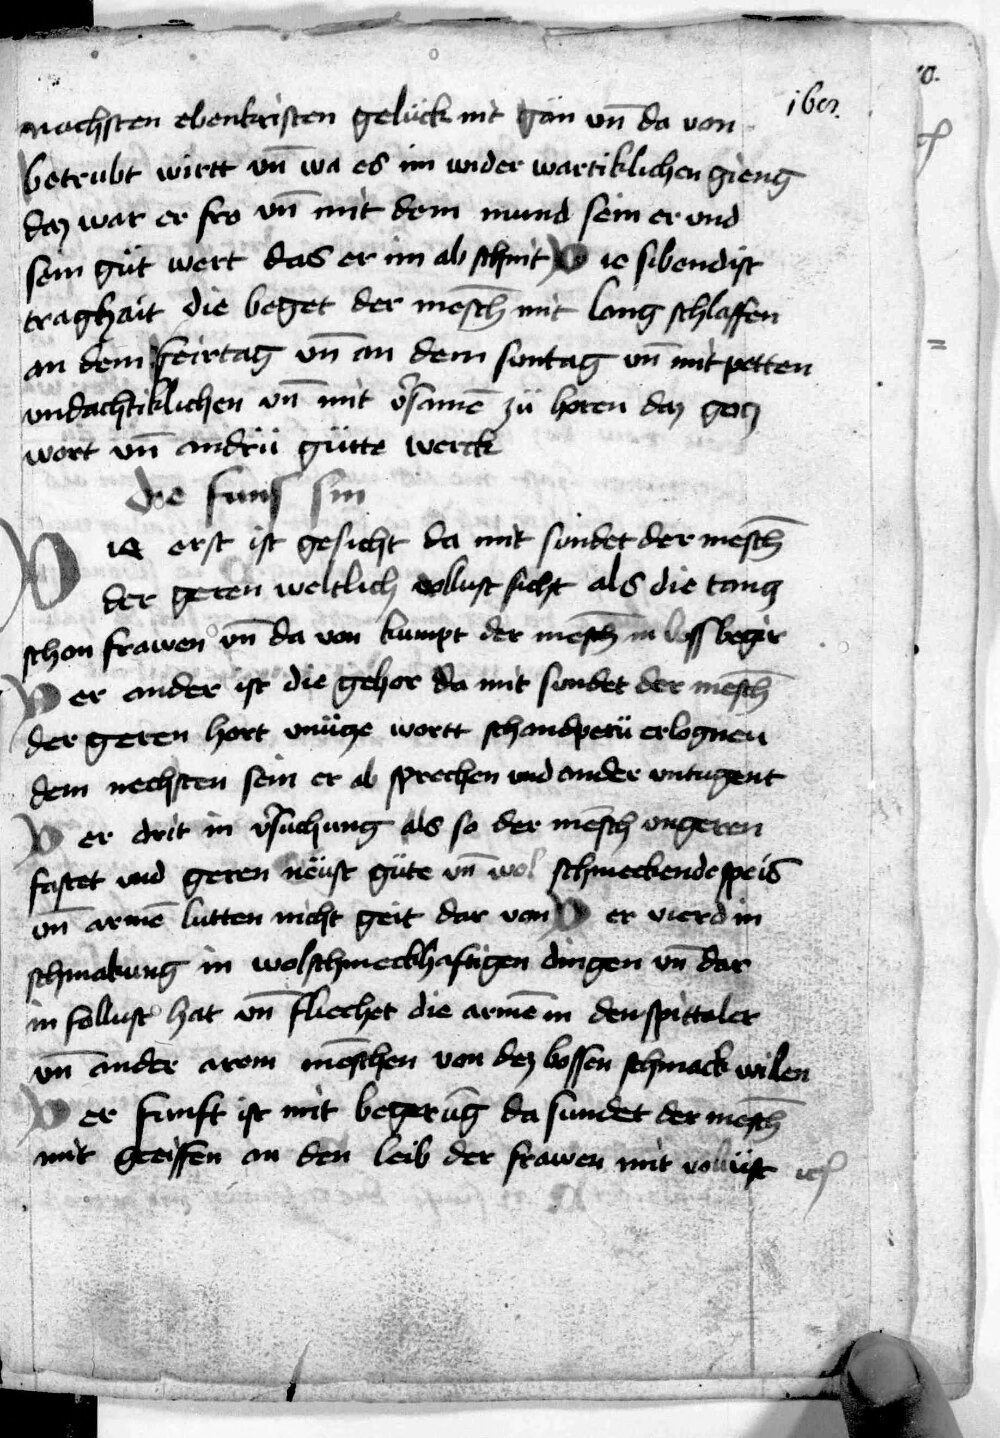 nachsten ebenkristen gelück nit gan vn̄ da von
betrubt wirtt vn̄ wa es im wider wartiklichen gieng
daz war er fro vn̄ mit dem mund sein er vnd
sein güt wert das er im ab schnit D ie sibendist
traghait die beget der mesch̄ mit lang schlaffen
an dem feirtag vn̄ an dem suntag vn̄ mit petten
vndachtiklichen vn̄ mit v̾samē zü horen daz gotz
wort vn̄ andrü gütte werck
die funf sin
D ie erst ist gesicht da mit sündet der mesch̄
der geren weltlich vollust sicht als die tantz
schon frawen vn̄ da von kumpt der mesch̄ in boss begir
D er ander ist die gehor da mit sundet der mesch̄
der geren hort vnücze wortt schandperü erlognen
dem nechsten sein er ab sprechen vnd ander vntugent
D er drit in v̾suchung als so der mēsch vngeren
fastet vnd geren neüst güte vn̄ wol schmeckende speis
vn̄ armē lutten nicht geit dar von D er vierd in
schmakung in wolschmeckhaftigen dingen vn̄ dar
in follust hat vn̄ fliechet die armē in den spittaler
vn̄ ander arem mēschen von dez bossen schmack wilen
D er funft ist mit begerūg da sundet der mesch̄
mit greiffen an den leib der frawen mit vollüst